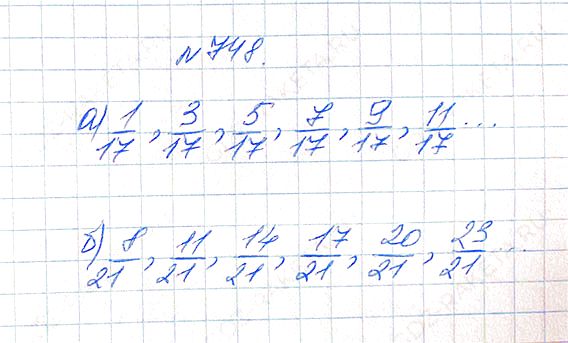 № 748.
а) 1/17, 3/17, 5/17, 7/17, 9/17, 11/17 ...
б) 8/21, 11/21, 14/21, 17/21, 20/21, 23/21 ...